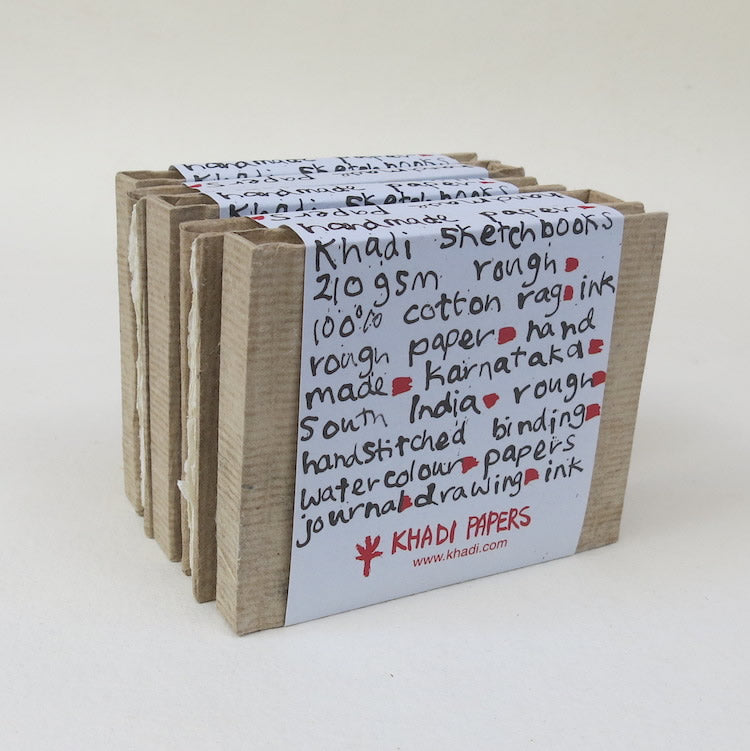 handmade paper
Khadi sketchbooks
handmade paper
Khadi sketchbooks
handmade paper
Khadi sketchbooks
210gsm rough
100% cotton rag ink
rough paper hand
made Karnataka
South India rough
handstitched binding
watercolour papers
journal drawing ink
KHADI PAPERS
www.khadi.com